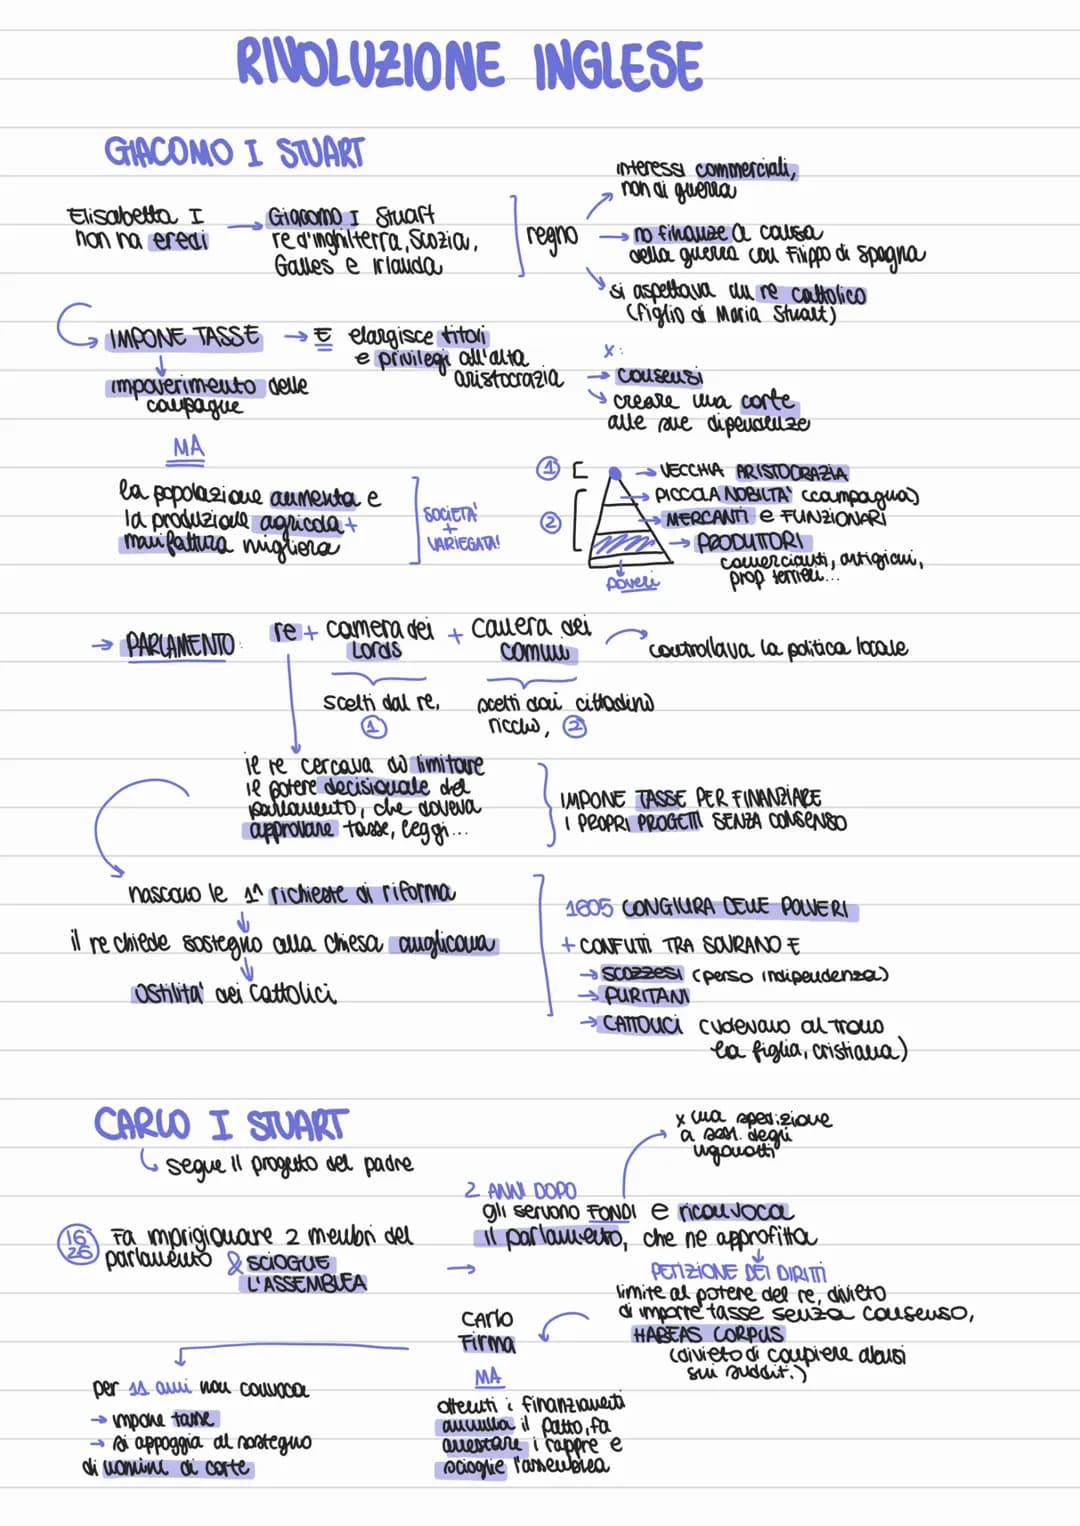 RIVOLUZIONE INGLESE
GIACOMO I STUART
Elisabetta I
non ha eredi
→ Giacomo I Stuart
re d'inghilterra, Scozia,
Galles e irlanda
regno
interessi commerciali,
non di guerra
→ no finanze a causa
della guerra con Filippo di Spagna
si aspettava un re cattolico
(figlio di Maria Stuart)
IMPONE TASSE → E elargisce titoli
e privilegi all'alta
aristocrazia
x:
→ consensi
creare una corte
alle sue dipendenze
impoverimento delle
campagne
MA
la popolazione aumenta e
la produzione agricola +
manifattura migliora
SOCIETÀ
+
VARIEGATA!
1
2
→ VECCHIA ARISTOCRAZIA
→ PICCOLA NOBILTA' (campagna)
→ MERCANTI e FUNZIONARI
→ PRODUTTORI
commercianti, artigiani,
prop terrieri...
poveri
→ PARLAMENTO: re + camera dei Lords + camera dei comuni
controllava la politica locale
scelti dal re,
1
scelti dai cittadini
ricchi, 2
il re cercava di limitare
il potere decisionale del
parlamento, che doveva
approvare tasse, leggi...
IMPONE TASSE PER FINANZIARE
I PROPRI PROGETTI SENZA CONSENSO
nascono le 1^ richieste di riforma
il re chiede sostegno alla chiesa anglicana
ostilita' dei cattolici
1605 CONGIURA DELLE POLVERI
+ CONFLITTI TRA SOVRANO E
→ SCOZZESI (perso indipendenza)
→ PURITANI
→ CATTOLICI (volevano al trono
la figlia, cristiana)
CARLO I STUART
segue il progetto del padre
1626 Fa imprigionare 2 membri del
parlamento & SCIOGLIE
L'ASSEMBLEA
→
x una spedizione
a sost. degli
ugonotti
2 ANNI DOPO
gli servono FONDI e riconvoca
il parlamento, che ne approfitta
PETIZIONE DEI DIRITTI
limite al potere del re, divieto
di imporre tasse senza consenso,
HABEAS CORPUS
(divieto di compiere abusi
sui suddit.)
Carlo
Firma
MA
ottenuti i finanziamenti
annulla il patto, fa
arrestare i rappre e
scioglie l'assemblea
per 11 anni non convoca
→ impone tasse
→ si appoggia al sostegno
di uomini di corte